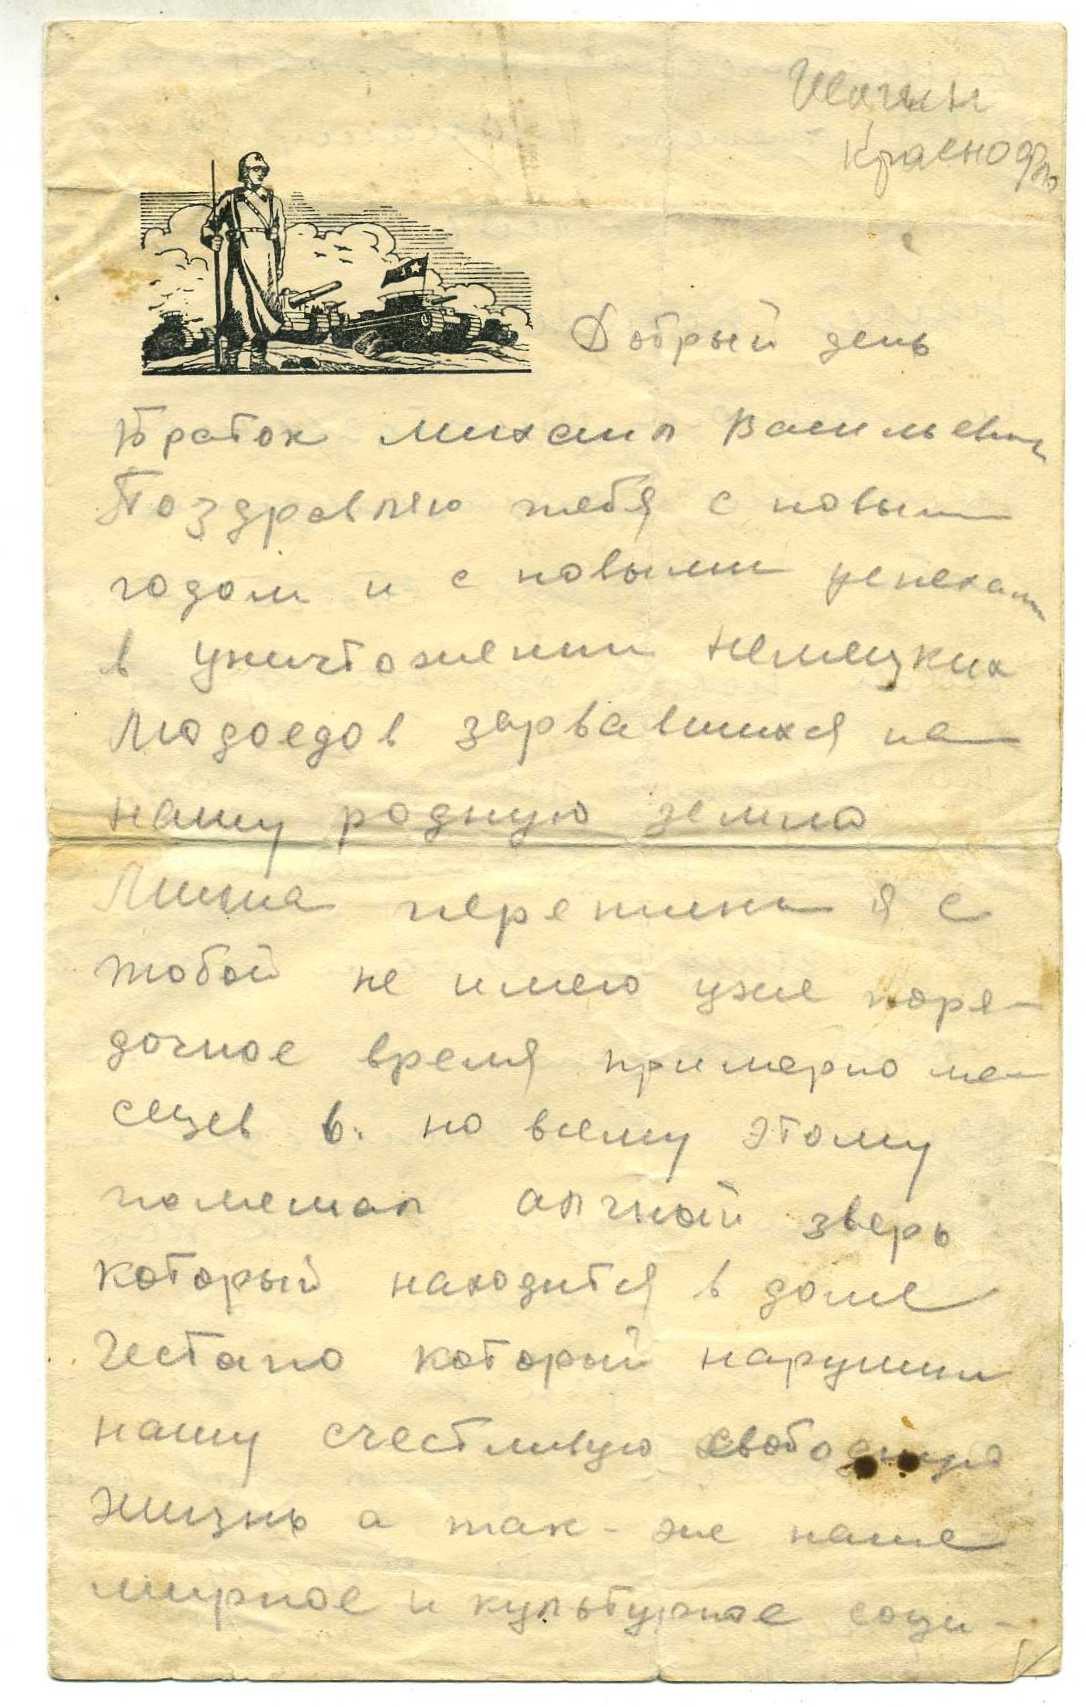 Добрый день
Браток Михаил Васильевич
Поздравляю тебя с новым
годом и с новыми успехами
в уничтожении немецких
людоедов зарвавшихся на
нашу родную землю
Миша переписки я с
тобой не имею уже поре-
дочное время примерно ме-
сецев 6. но всему этому
помешал алчный зверь
который находится в доме
Гестапо который нарушил
нашу счестливую свободную
жизнь а так-же наше
мирное и культурное соци-